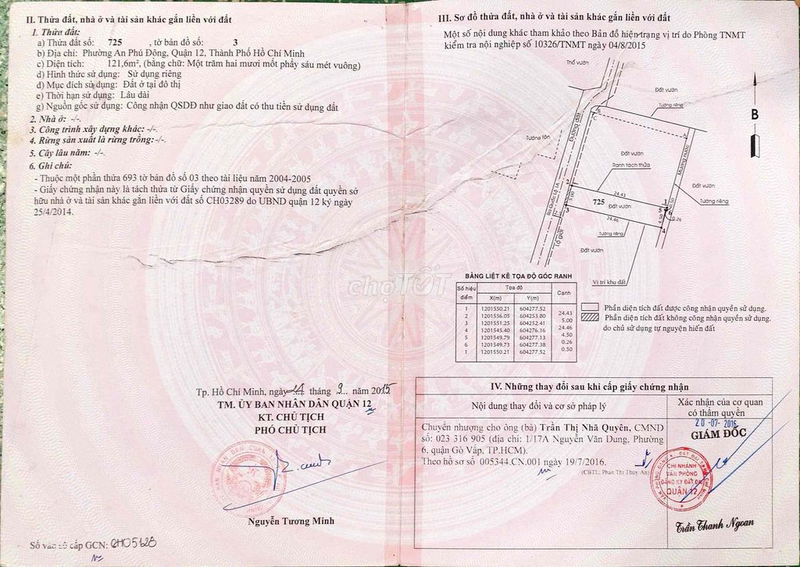 II. Thửa đất, nhà ở và tài sản khác gắn liền với đất
1. Thửa đất:
a) Thửa đất số: 725 , tờ bản đồ số: 3
b) Địa chỉ: Phường An Phú Đông, Quận 12, Thành Phố Hồ Chí Minh
c) Diện tích: 121,6m², (bằng chữ: Một trăm hai mươi mốt phẩy sáu mét vuông)
d) Hình thức sử dụng: Sử dụng riêng
đ) Mục đích sử dụng: Đất ở tại đô thị
e) Thời hạn sử dụng: Lâu dài
g) Nguồn gốc sử dụng: Công nhận QSDĐ như giao đất có thu tiền sử dụng đất
2. Nhà ở: -/-.
3. Công trình xây dựng khác: -/-.
4. Rừng sản xuất là rừng trồng: -/-.
5. Cây lâu năm: -/-.
6. Ghi chú:
- Thuộc một phần thửa 693 tờ bản đồ số 03 theo tài liệu năm 2004-2005
- Giấy chứng nhận này là tách thửa từ Giấy chứng nhận quyền sử dụng đất quyền sở
hữu nhà ở và tài sản khác gắn liền với đất số CH03289 do UBND quận 12 ký ngày
25/4/2014.
Tp. Hồ Chí Minh, ngày tháng 9 năm 2015
TM. ỦY BAN NHÂN DÂN QUẬN 12
KT. CHỦ TỊCH
PHÓ CHỦ TỊCH
Nguyễn Tương Minh
Số vào sổ cấp GCN: CH05628
III. Sơ đồ thửa đất, nhà ở và tài sản khác gắn liền với đất
Một số nội dung khác tham khảo theo Bản đồ hiện trạng vị trí do Phòng TNMT
kiểm tra nội nghiệp số 10326/TNMT ngày 04/8/2015
Thổ vườn
Đất vườn
Tường riêng
B
Đường đất
Tường tôn
Đất vườn
Mương nước
Ranh tách thửa
24.43
725
Đất vườn
Tường riêng
24.46
Tường riêng
0.26
Lộ Giới
Đất vườn
Vị trí khu đất
chợTỐT
BẢNG LIỆT KÊ TỌA ĐỘ GÓC RANH
Số hiệu điểm Tọa độ Cạnh
X(m) Y(m)
1 1201550.21 604277.52
24.43
2 1201556.05 604253.80
5.00
3 1201551.25 604252.41
24.46
4 1201545.40 604276.16
4.50
5 1201549.79 604277.13
0.26
6 1201549.73 604277.38
0.50
1 1201550.21 604277.52
Phần diện tích đất được công nhận quyền sử dụng.
Phần diện tích đất không công nhận quyền sử dụng.
do chủ sử dụng tự nguyện hiến đất
IV. Những thay đổi sau khi cấp giấy chứng nhận
Nội dung thay đổi và cơ sở pháp lý
Xác nhận của cơ quan
có thẩm quyền
Chuyển nhượng cho ông (bà) Trần Thị Nhã Quyên, CMND
số: 023 316 905 (địa chỉ: 1/17A Nguyễn Văn Dung, Phường
6, quận Gò Vấp, TP.HCM).
Theo hồ sơ số 005344.CN.001 ngày 19/7/2016.
(CBTL: Phan Thị Thúy An)
20-07-2016
GIÁM ĐỐC
CHI NHÁNH
VĂN PHÒNG
ĐĂNG KÝ ĐẤT ĐAI
QUẬN 12
Trần Thanh Ngoan